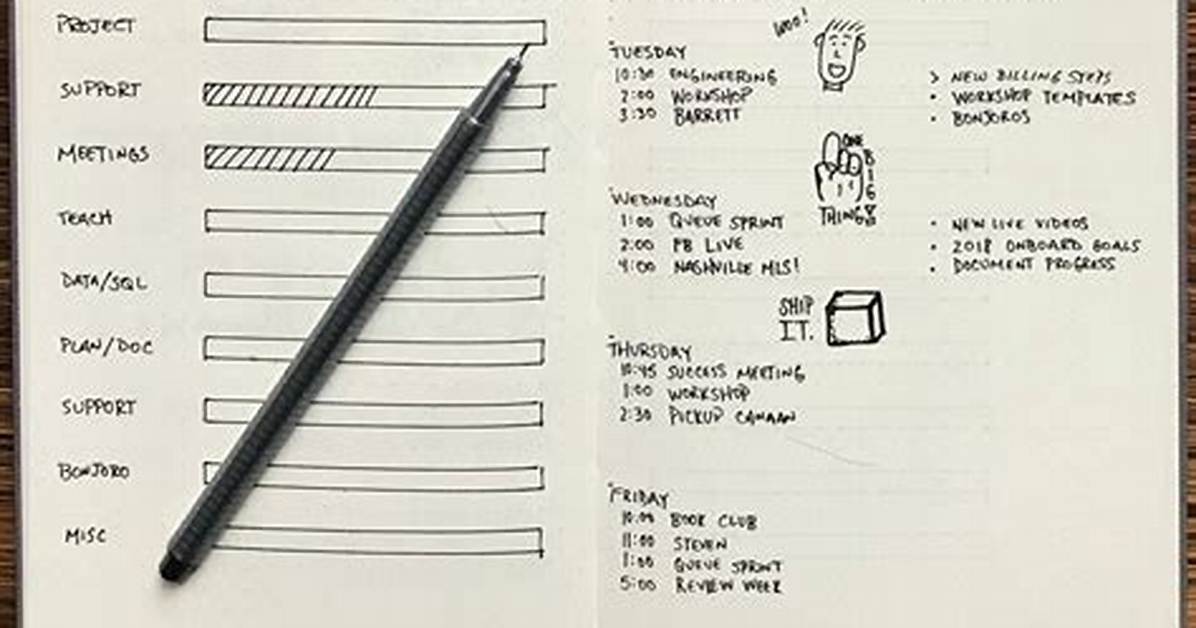 PROJECT
SUPPORT
MEETINGS
TEACH
DATA/SQL
PLAN/DOC
SUPPORT
BONJORO
MISC
WOO!
TUESDAY
10:30 ENGINEERING
2:00 WORKSHOP
3:30 BARRETT
> NEW BILLING STEPS
• WORKSHOP TEMPLATES
• BONJOROS
ONE
BIG
THING!
WEDNESDAY
1:00 QUEUE SPRINT
2:00 FB LIVE
4:00 NASHVILLE MLS!
• NEW LIVE VIDEOS
• 2018 ONBOARD GOALS
• DOCUMENT PROGRESS
SHIP
IT.
THURSDAY
10:45 SUCCESS MEETING
1:00 WORKSHOP
2:30 PICKUP CANAAN
FRIDAY
10:00 BOOK CLUB
11:00 STEVEN
1:00 QUEUE SPRINT
5:00 REVIEW WEEK